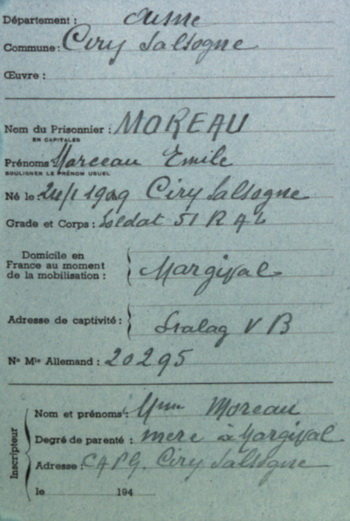 Département : Aisne
Commune : Ciry Salsogne
Œuvre :
Nom du Prisonnier : MOREAU
EN CAPITALES
Prénoms Marceau Emile
SOULIGNER LE PRÉNOM USUEL
Né le : 24/1 1909 Ciry Salsogne
Grade et Corps : Soldat 51 R A L
Domicile en
France au moment
de la mobilisation : Margival
Adresse de captivité : Stalag V B
N° Mle Allemand : 20295
Inscripteur
Nom et prénoms : Mme Moreau
Degré de parenté : mere à Margival
Adresse : CAPG. Ciry Salsogne
le 194